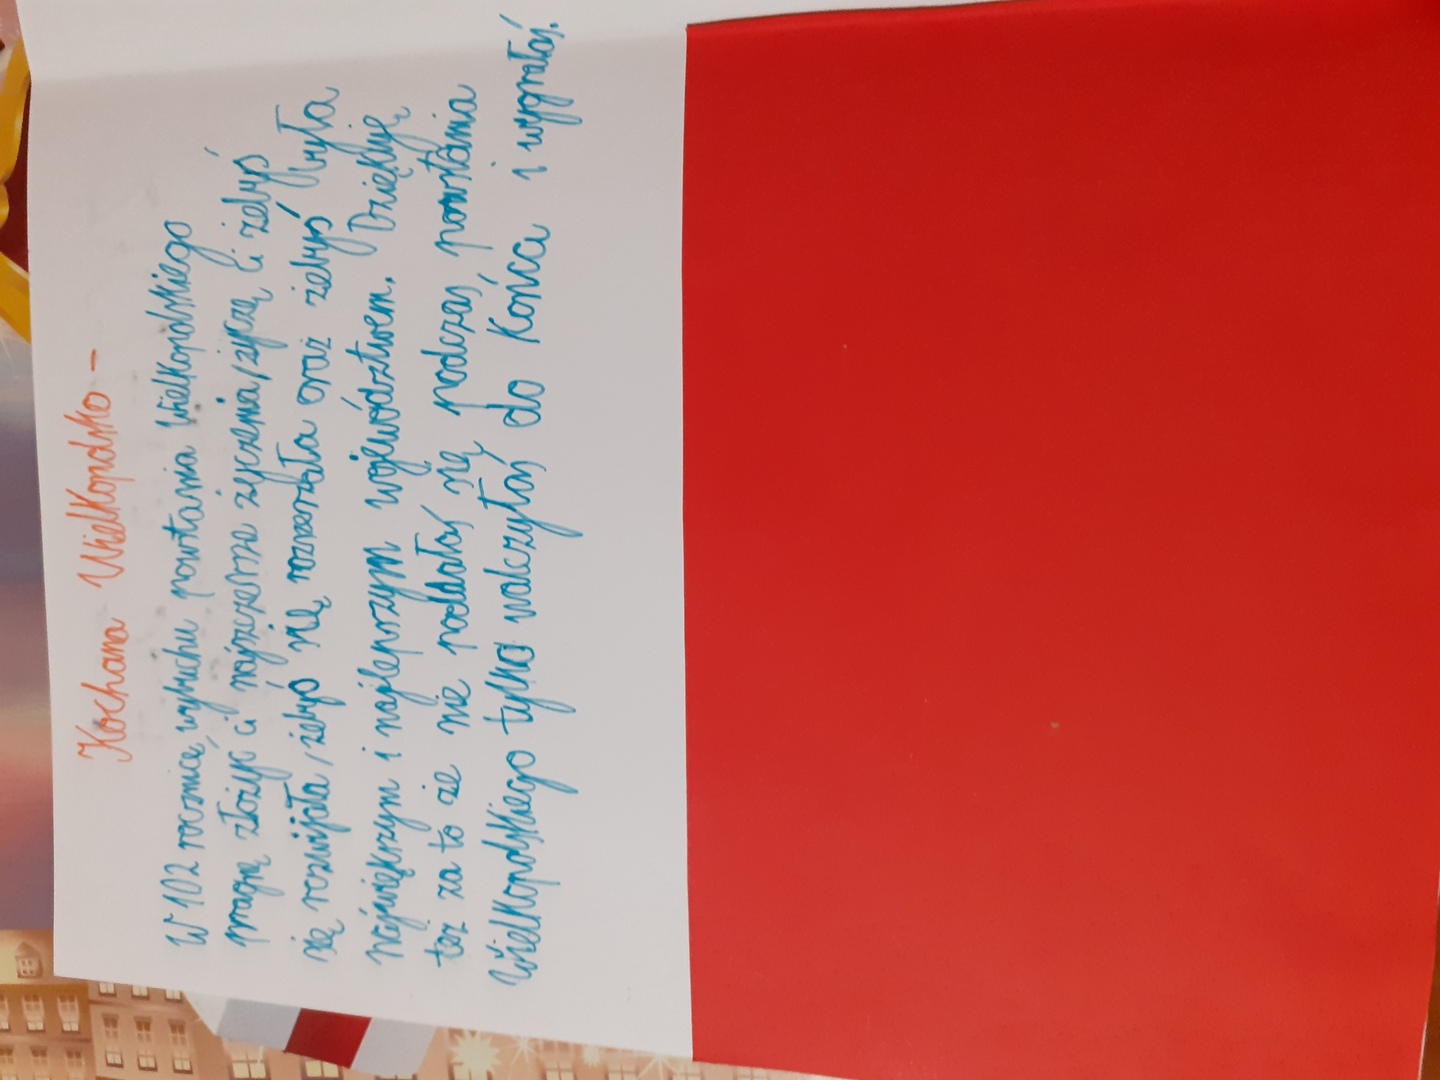 Kochana Wielkopolsko -
W 102 rocznicę wybuchu powstania Wielkopolskiego
pragnę złożyć ci najszczersze życzenia, życzę Ci żebyś
się rozwijała, żebyś się rozrastała oraz żebyś była
największym i najlepszym województwem. Dziękuję
też za to że nie poddałaś się podczas powstania
Wielkopolskiego tylko walczyłaś do końca i wygrałaś.